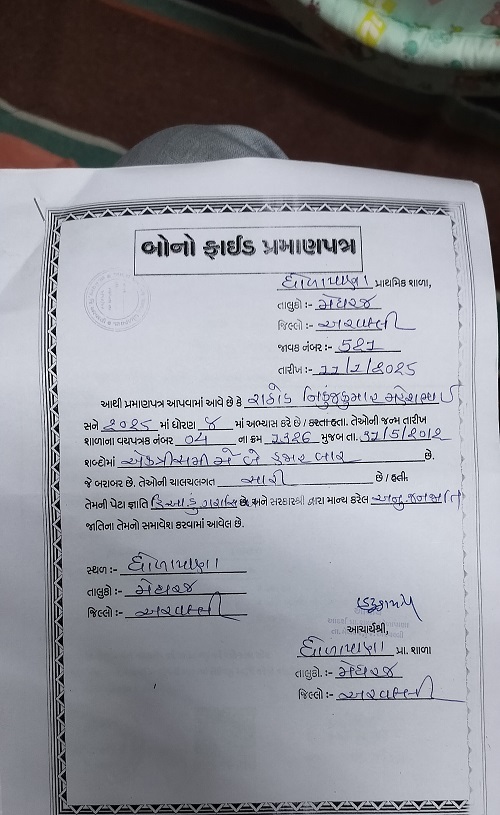 બોનો ફાઈડ પ્રમાણપત્ર
ધોળાપાણા પ્રાથમિક શાળા,
તાલુકો :- મેઘરજ
જિલ્લો :- અરવલ્લી
જાવક નંબર :- 521
તારીખ :-
આથી પ્રમાણપત્ર આપવામાં આવે છે કે રાઠોડ નિકુંજકુમાર
સને ૨૦૨૫ માં ધોરણ ૮ માં અભ્યાસ કરે છે / કરતા હતા. તેઓની જન્મ તારીખ
શાળાના વયપત્રક નંબર 04 ના ક્રમ 1326 મુજબ તા. 31/5/2012
શબ્દોમાં એકત્રીસમી મે બે હજાર બાર છે.
જે બરાબર છે. તેઓની ચાલચલગત સારી છે / હતી.
તેમની પેટા જ્ઞાતિ છે. અને સરકારશ્રી દ્વારા માન્ય કરેલ અનુ જનજાતિ
જાતિના તેમનો સમાવેશ કરવામાં આવેલ છે.
સ્થળ :- ધોળાપાણા
તાલુકો :- મેઘરજ
જિલ્લો :- અરવલ્લી
આચાર્યશ્રી,
ધોળાપાણા પ્રા. શાળા
તાલુકો. :- મેઘરજ
જિલ્લો :- અરવલ્લી